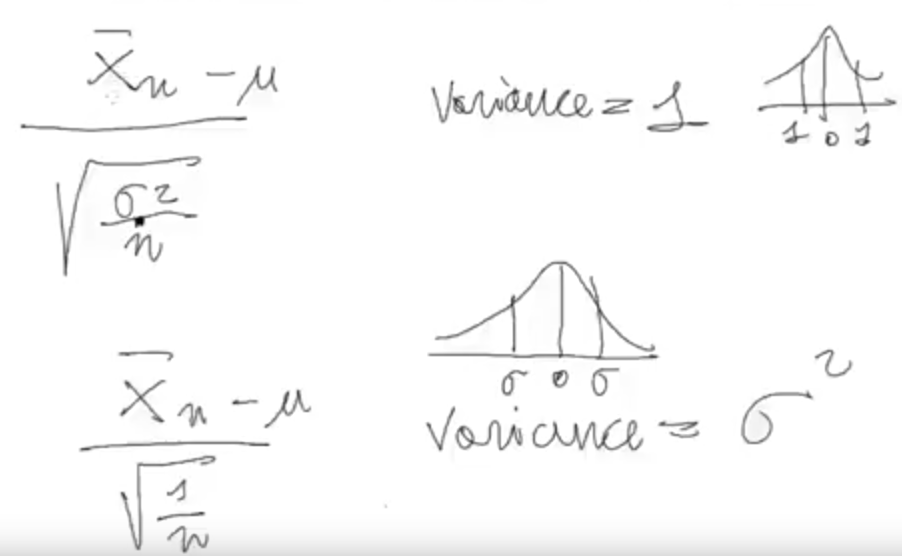 X̄n - μ
√(σ²/n)
variance = 1
1 0 1
σ 0 σ
X̄n - μ
√(1/n)
variance = σ²